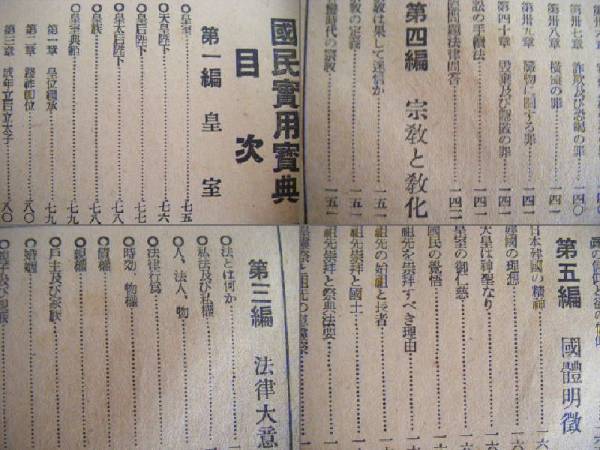 國民實用寶典
目次
第一編 皇室
○皇室……七五
○天皇陛下……七六
○皇后陛下……七七
○皇太后陛下……七八
○皇族……七八
○皇室典範……七九
第一章 皇位繼承……七九
第二章 踐祚即位……八〇
第三章 成年立后立太子……八〇
橫領の罪……一四一
贓物に關する罪……一四一
第四十章 毀棄及び隱匿の罪……一四一
訟の手續法……一四一
法律問答……一四二
第四編 宗教と教化
教は果して迷信か……一五一
教の定義……一五一
時代の宗教……一五一
第三編 法律大意
○法とは何か
○私法及び私權
○人、法人、物
○法律行爲
○時効、物權
○債權
○親權
○戸主及び家族
○婚姻
○親子及び親族
第五編 國體明徵
日本建國の精神
建國の理想
天皇は神聖なり
皇室の御仁慈
國民の覺悟
祖先を崇拜すべき理由
祖先の始祖と長者
祖先崇拜と國土
祖先崇拜と祭典法要